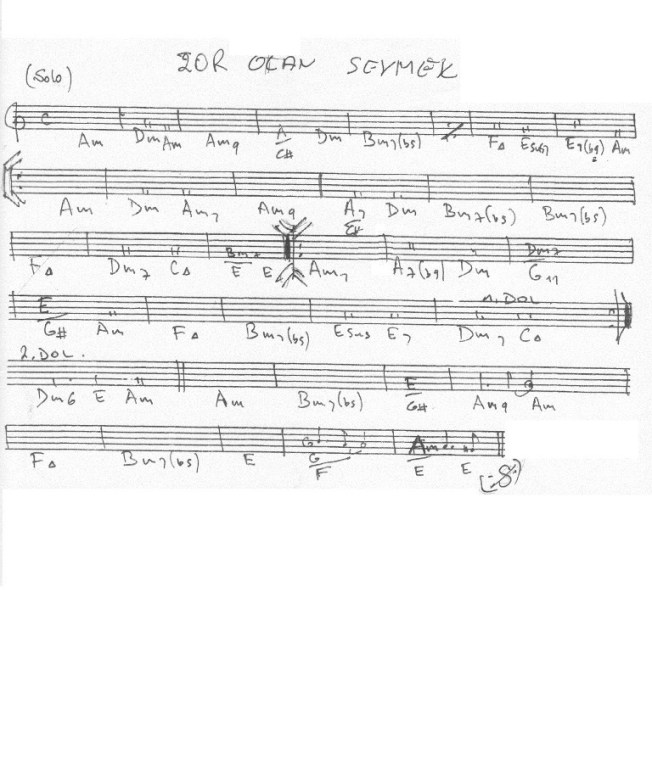 ZOR OLAN SEVMEK
(Solo)
C
Am Dm Am Am9 A/C# Dm Bm7(b5) ٪ F△ Esus7 E7(b9) Am
Am Dm Am7 Am9 A7 Dm Bm7(b5) Bm7(b5)
F△ Dm7 C△ Bm7/E E Am7 A7(b9) Dm Dm7/G11
1. DOL
E/G# Am F△ Bm7(b5) Esus E7 Dm7 C△
2. DOL.
Dm6 E Am Am Bm7(b5) E/G# Am9 Am
F△ Bm7(b5) E G/F Am/E E